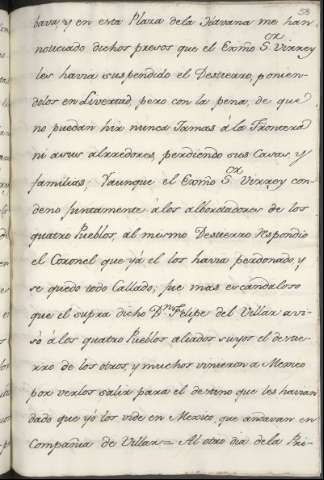 53
bara, y en esta Plaza dela Havana me han
noticiado dichos presos que el Exmo S.or Virrey
les havia suspendido el Destierro, ponien-
dolos en Livertad, pero con la pena, de que
no puedan hir nunca Jamas à la Frontera
ni a sus alrredores, perdiendo sus Casas, y
familias, Yaunque el Exmo S.or Virrey con-
deno Juntamente á los alborotadores de los
quatro Pueblos, al mesmo Destierro respondio
el Coronel que yá el los havia perdonado, y
se quedo todo Callado; fue mas escandaloso
que el supra dicho D.n Felipe del Villar avi-
só á los quatro Pueblos aliados suyos el destie-
rro de los otros, y muchos vinieron a Mexico
por verlos salir para el destino que les havian
dado que yó los vide en Mexico, que andavan en
Compañia de Villar = Al otro dia de la Pri-